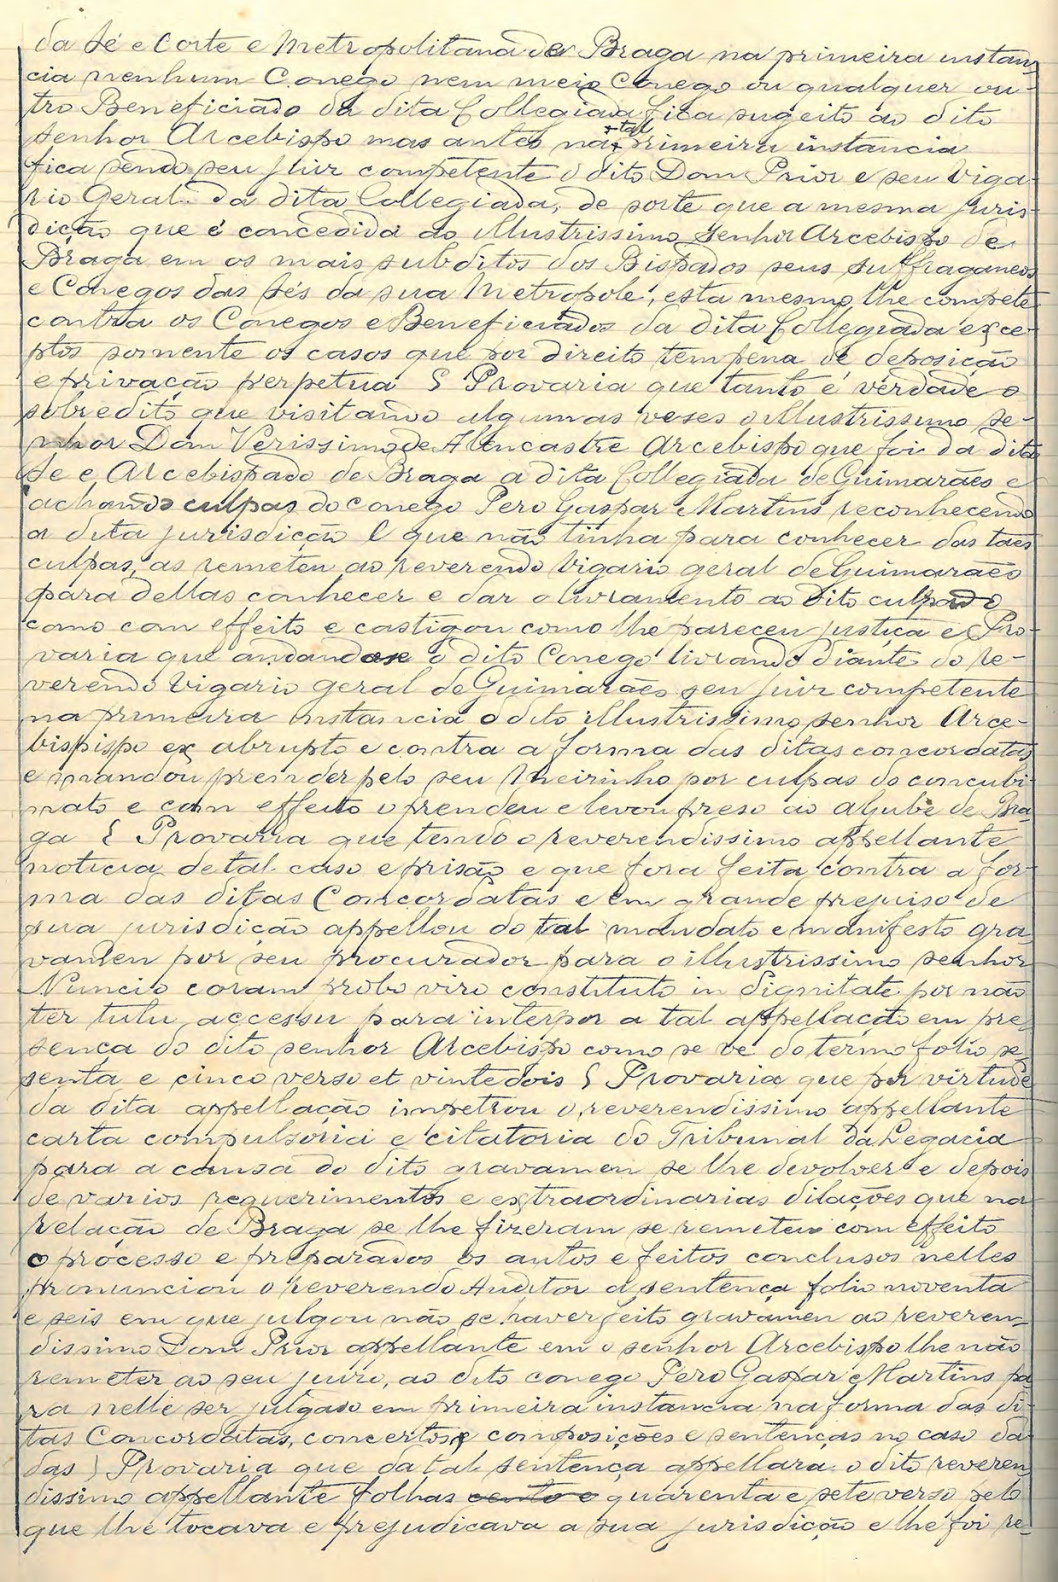 da Sé e Corte e Metropolitana de Braga na primeira instan-
cia nenhum Conego nem meio Conego ou qualquer ou-
tro Beneficiado da dita Collegiada fica sugeito ao dito
senhor Arcebispo mas antes na + tal primeira instancia
fica sendo seu juiz competente o dito Dom Prior e seu Viga-
rio Geral da dita Collegiada, de sorte que a mesma juris-
dição que é concedida ao Illustrissimo Senhor Arcebispo de
Braga em os mais subditos dos Bispados seus suffraganeos
e Conegos das Sés da sua Metropole, esta mesmo lhe compete
contra os Conegos e Beneficiados da dita Collegiada exce-
ptos somente os casos que por direito tem pena de deposição
e privação perpetua § Provaria que tanto é verdade o
sobredito que visitando algumas veses o Illustrissimo se-
nhor Dom Verissimo de Alencastre Arcebispo que foi da dita
Se e Arcebispado de Braga a dita Collegiada de Guimarães e
achando culpas do conego Pero Gaspar Martins reconhecendo
a dita jurisdicção e que não tinha para conhecer das taes
culpas, as remeteu ao reverendo Vigario geral de Guimarães
para dellas conhecer e dar o livramento ao dito culpado
como com effeito e castigou como lhe pareceu justiça e Pro-
varia que andandose o dito Conego livrando diante do re-
verendo Vigario geral de Guimarães seu juiz competente
na primeira instancia o dito illustrissimo senhor Arce-
bispispo ex abrupto e contra a forma das ditas concordatas
e mandou preinder pelo seu Meirinho por culpas do concubi-
nato e com effeito o prendeu e levou preso ao aljube de Bra-
ga § Provaria que tendo o reverendissimo appellante
noticia de tal caso e prisão e que fora feita contra a for-
ma das ditas Concordatas e em grande prejuiso de
sua jurisdicção appellou do tal mandato e manifesto gra-
vamen por seu procurador para o illustrissimo senhor
Nuncio coram probo viro constituto in dignitate por não
ter tutu accessu para interpor a tal appellação em pre-
sença do dito senhor Arcebispo como se vê do termo folio se-
senta e cinco verso et vinte dois § Provaria que por virtude
da dita appellação impetrou o reverendissimo appellante
carta compulsoria e citatoria do Tribunal da Legacia
para a causa do dito gravamen se lhe devolver e depois
de varios requerimentos e extraordinarias dilações que na
relação de Braga se lhe fizeram se remeteu com effeito
o processo e preparados os autos e feitos conclusos nelles
pronunciou o reverendo Auditor a sentença folio noventa
e seis em que julgou não se haver feito gravamen ao reveren-
dissimo Dom Prior appellante em o senhor Arcebispo lhe não
remeter ao seu juizo, ao dito conego Pero Gaspar Martins pa-
ra nelle ser julgado em primeira instancia na forma das di-
tas Concordatas, concertos e composições e sentenças no caso da-
das § Provaria que da tal sentença appellara o dito reveren-
dissimo appellante folhas cento e quarenta e sete verso pelo
que lhe tocava e prejudicava a sua jurisdicção e lhe foi re-